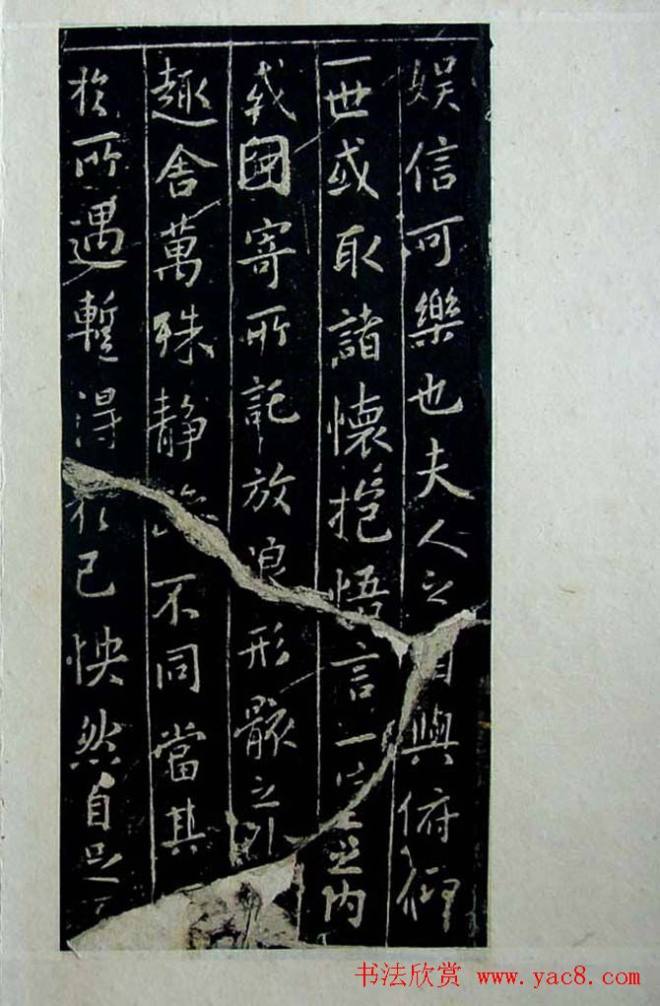 娛信可樂也夫人之與俯仰
一世或取諸懷抱悟言一室之内
或因寄所託放浪形骸之外
趣舍萬殊静躁不同當其
於所遇蹔得於己怏然自足
书法欣赏 www.yac8.com